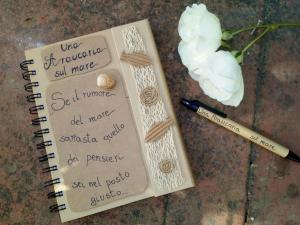 Una
Araucaria
sul mare
Se il rumore
del mare
sovrasta quello
dei pensieri
sei nel posto
giusto...
una Araucaria sul mare